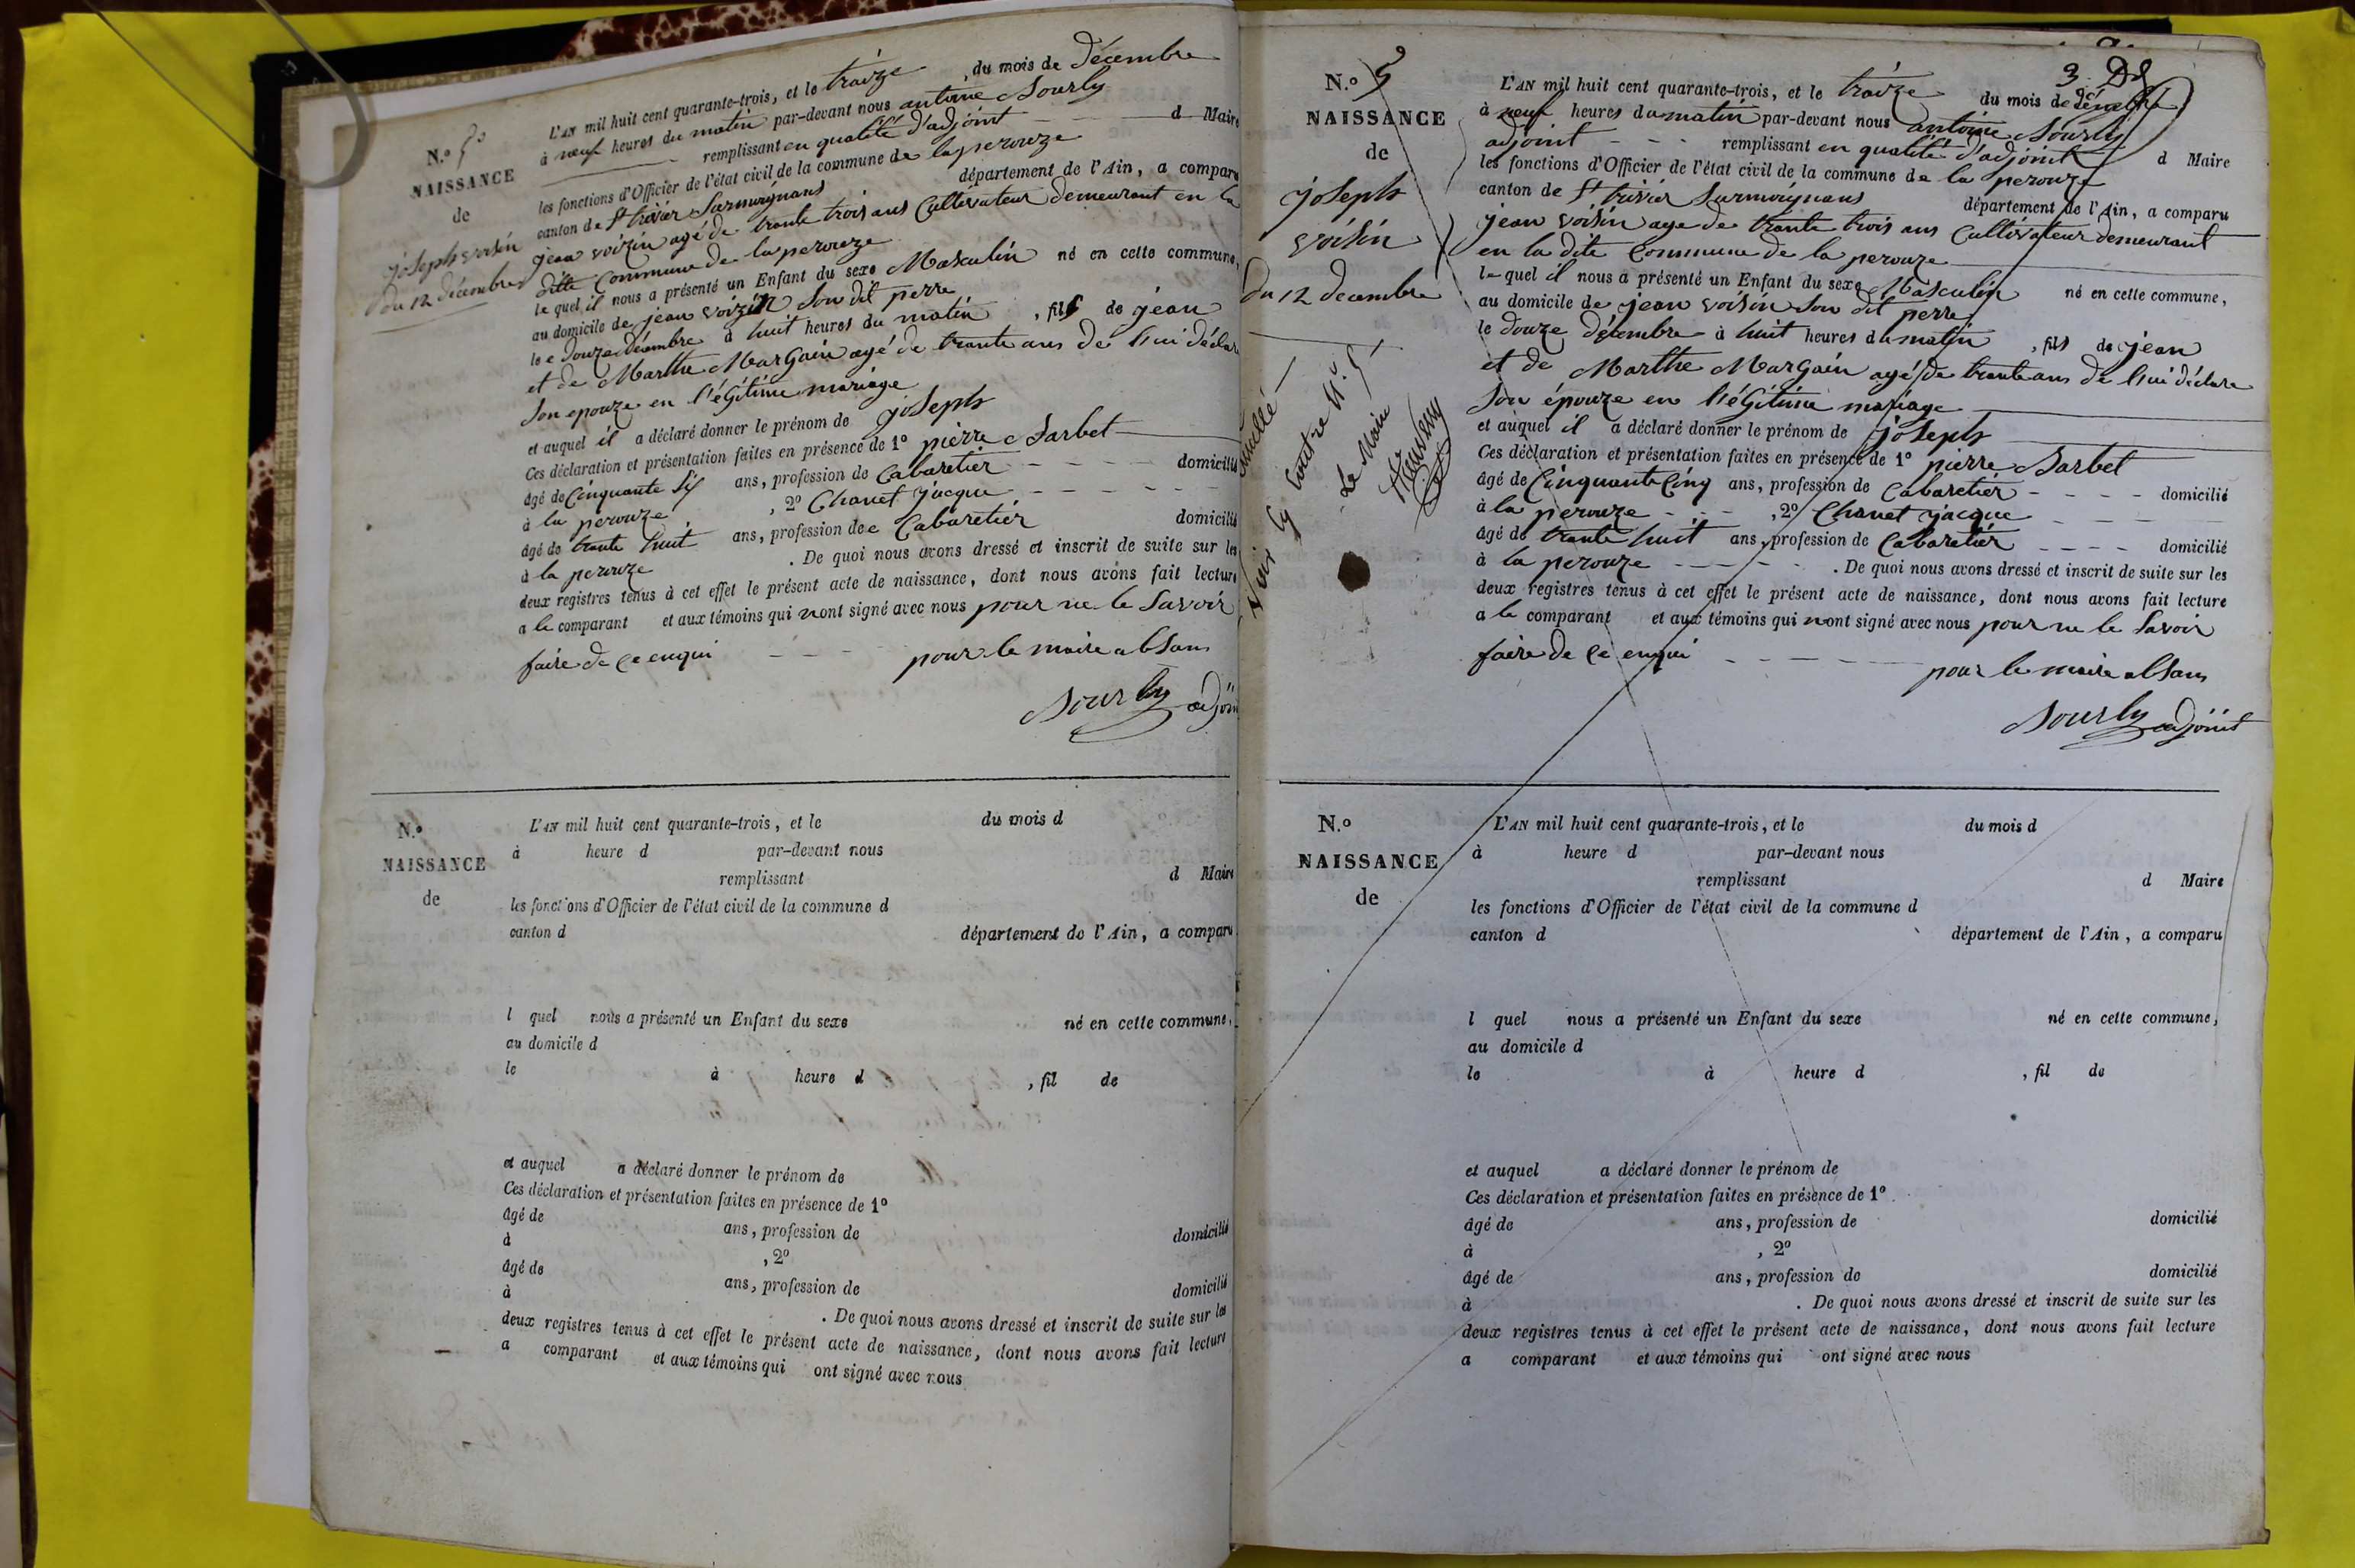 N.º 5
NAISSANCE
de
joseph voisin
du 12 décembre
L'AN mil huit cent quarante-trois, et le traize, du mois de décembre
à neuf heures du matin par-devant nous antoine Sourly
remplissant en qualité d'adjoint d Maire
les fonctions d'Officier de l'état civil de la commune de la perouze
canton de St trivier Surmoignans département de l'Ain, a comparu
jean voizin agé de trante trois ans Cultivateur demeurant en la
ditte Commune de la perouze
le quel il nous a présenté un Enfant du sexe Masculin né en cette commune,
au domicile de jean voizin Son dit perre
le douze décembre à huit heures du matin, fils de jean
et de Marthe Margain agé de trante ans de lui déclare
Son epouze en l'égitime mariage
et auquel il a déclaré donner le prénom de joseph
Ces déclaration et présentation faites en présence de 1º pierre Barbet
âgé de Cinquante Six ans, profession de Cabaretier domicilié
à la perouze, 2º Chanet jacque
âgé de trante huit ans, profession de Cabaretier domicilié
à la perouze. De quoi nous avons dressé et inscrit de suite sur les
deux registres tenus à cet effet le présent acte de naissance, dont nous avons fait lecture
a le comparant et aux témoins qui nont signé avec nous pour ne le Savoir
faire de ce enqui pour le maire absans
Sourly adjoint
N.º
NAISSANCE
de
L'AN mil huit cent quarante-trois, et le du mois d
à heure d par-devant nous
remplissant d Maire
les fonctions d'Officier de l'état civil de la commune d
canton d département de l'Ain, a comparu
l quel nous a présenté un Enfant du sexe né en cette commune,
au domicile d
le à heure d , fil de
et auquel a déclaré donner le prénom de
Ces déclaration et présentation faites en présence de 1º
âgé de ans, profession de domicilié
à , 2º
âgé de ans, profession de domicilié
à . De quoi nous avons dressé et inscrit de suite sur les
deux registres tenus à cet effet le présent acte de naissance, dont nous avons fait lecture
a comparant et aux témoins qui ont signé avec nous
N.º 5
NAISSANCE
de
joseph
voisin
du 12 decembre
Le Maire
L'AN mil huit cent quarante-trois, et le traize du mois de décembre
à neuf heures du matin par-devant nous antoine Sourly
adjoint remplissant en qualité d'adjoint d Maire
les fonctions d'Officier de l'état civil de la commune de la perouze
canton de St trivier Surmoignans département de l'Ain, a comparu
jean voisin age de trante trois ans Cultivateur demeurant
en la dite Commune de la perouze
le quel il nous a présenté un Enfant du sexe Masculin né en cette commune,
au domicile de jean voisin Son dit perre
le douze décembre à huit heures du matin, fils de jean
et de Marthe Margain agé de trante ans de lui déclare
Son épouze en l'égitime mariage
et auquel il a déclaré donner le prénom de joseph
Ces déclaration et présentation faites en présence de 1º pierre Barbet
âgé de Cinquante Cinq ans, profession de Cabaretier domicilié
à la perouze, 2º Chanet jacque
âgé de trante huit ans, profession de Cabaretier domicilié
à la perouze. De quoi nous avons dressé et inscrit de suite sur les
deux registres tenus à cet effet le présent acte de naissance, dont nous avons fait lecture
a le comparant et aux témoins qui nont signé avec nous pour ne le Savoir
faire de ce enqui pour le maire absans
Sourly adjoint
N.º
NAISSANCE
de
L'AN mil huit cent quarante-trois, et le du mois d
à heure d par-devant nous
remplissant d Maire
les fonctions d'Officier de l'état civil de la commune d
canton d département de l'Ain, a comparu
l quel nous a présenté un Enfant du sexe né en cette commune,
au domicile d
le à heure d , fil de
et auquel a déclaré donner le prénom de
Ces déclaration et présentation faites en présence de 1º
âgé de ans, profession de domicilié
à , 2º
âgé de ans, profession de domicilié
à . De quoi nous avons dressé et inscrit de suite sur les
deux registres tenus à cet effet le présent acte de naissance, dont nous avons fait lecture
a comparant et aux témoins qui ont signé avec nous